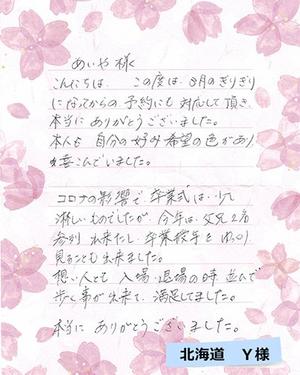 あいや様
こんにちは、この度は、3月のぎりぎり
になってからの予約にも対応して頂き、
本当にありがとうございました。
本人も自分の好み希望の色があり
喜こんでいました。
コロナの影響で卒業式は、少し
淋しいものでしたが、今年は、父兄2名
参列出来たし、卒業授与をゆっくり
見ることも出来ました。
想い人とも入場・退場の時並んで
歩く事が出来て、満足してました。
本当にありがとうございました。
北海道 Y様